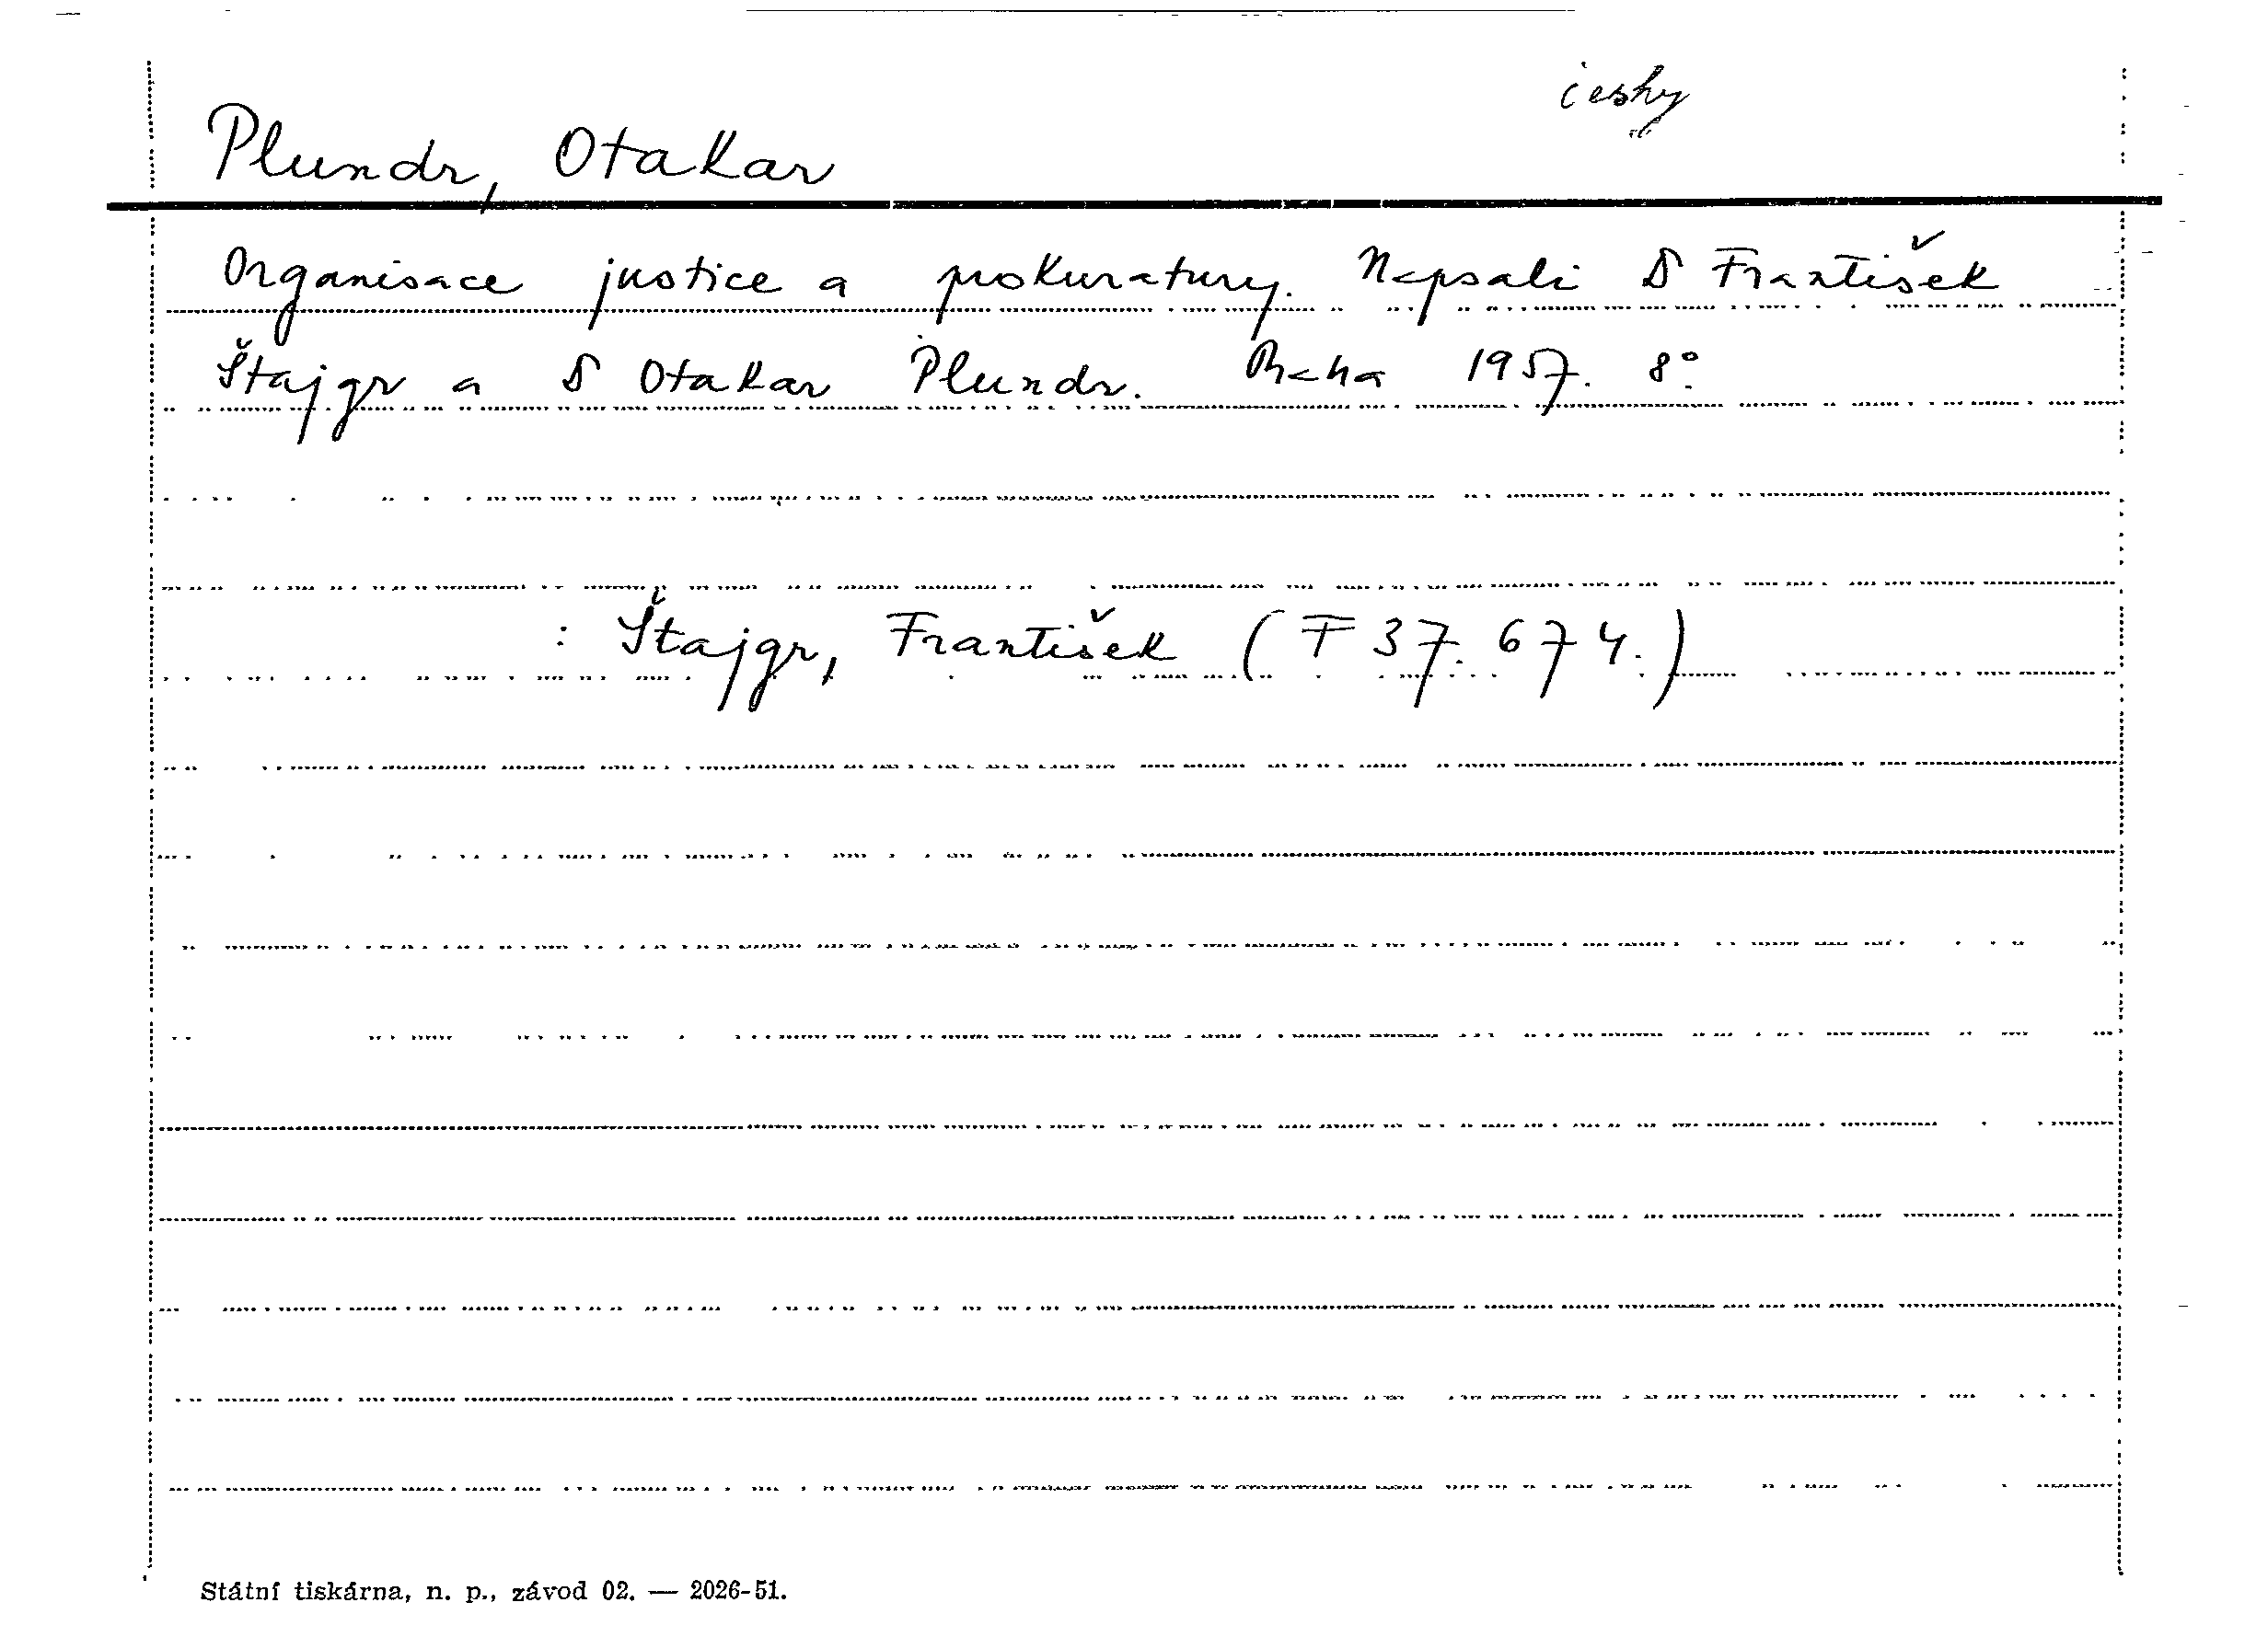 česky
Plundr, Otakar
Organisace justice a prokuratury. Napsali D František
Štajgr a D Otakar Plundr. Praha 1957. 8°.
: Štajgr, František (F 37.674.)
Státní tiskárna, n. p., závod 02. — 2026-51.